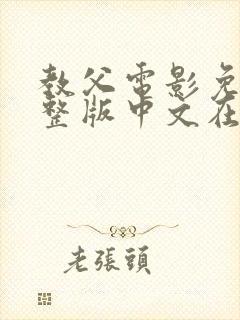 教父電影免
整版中文在
老張頭